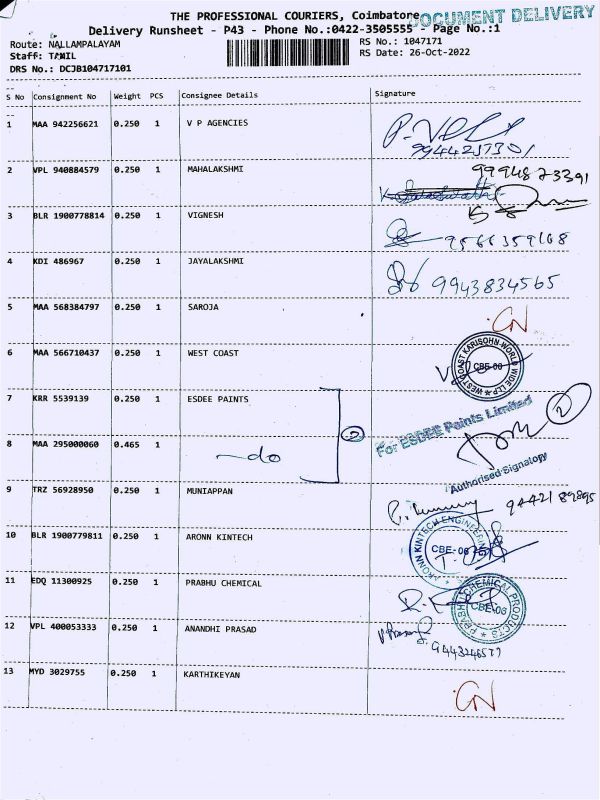 THE PROFESSIONAL COURIERS, Coimbatore
DOCUMENT DELIVERY
Delivery Runsheet - P43 - Phone No.:0422-3505555 - Page No.:1
Route: NALLAMPALAYAM
RS No.: 1047171
Staff: TAMIL
RS Date: 26-Oct-2022
DRS No.: DCJB104717101
S No Consignment No Weight PCS Consignee Details Signature
1 MAA 942256621 0.250 1 V P AGENCIES
2 VPL 940884579 0.250 1 MAHALAKSHMI 9994873391
3 BLR 1900778814 0.250 1 VIGNESH 9566359168
4 KDI 486967 0.250 1 JAYALAKSHMI 9943834565
5 MAA 568384797 0.250 1 SAROJA CN
6 MAA 566710437 0.250 1 WEST COAST
WEST COAST KARISOHN WORLD WIDE LLP
CBE-06
7 KRR 5539139 0.250 1 ESDEE PAINTS
For ESDEE Paints Limited
2
8 MAA 295000060 0.465 1 -do 2
Authorised Signatory
9 TRZ 56928950 0.250 1 MUNIAPPAN 9442189895
10 BLR 1900779811 0.250 1 ARONN KINTECH
ARONN KINTECH ENGINEERING
CBE-06
11 EDQ 11300925 0.250 1 PRABHU CHEMICAL
PRABHU CHEMICAL PRODUCTS
CBE-06
12 VPL 400053333 0.250 1 ANANDHI PRASAD
13 MYD 3029755 0.250 1 KARTHIKEYAN CN